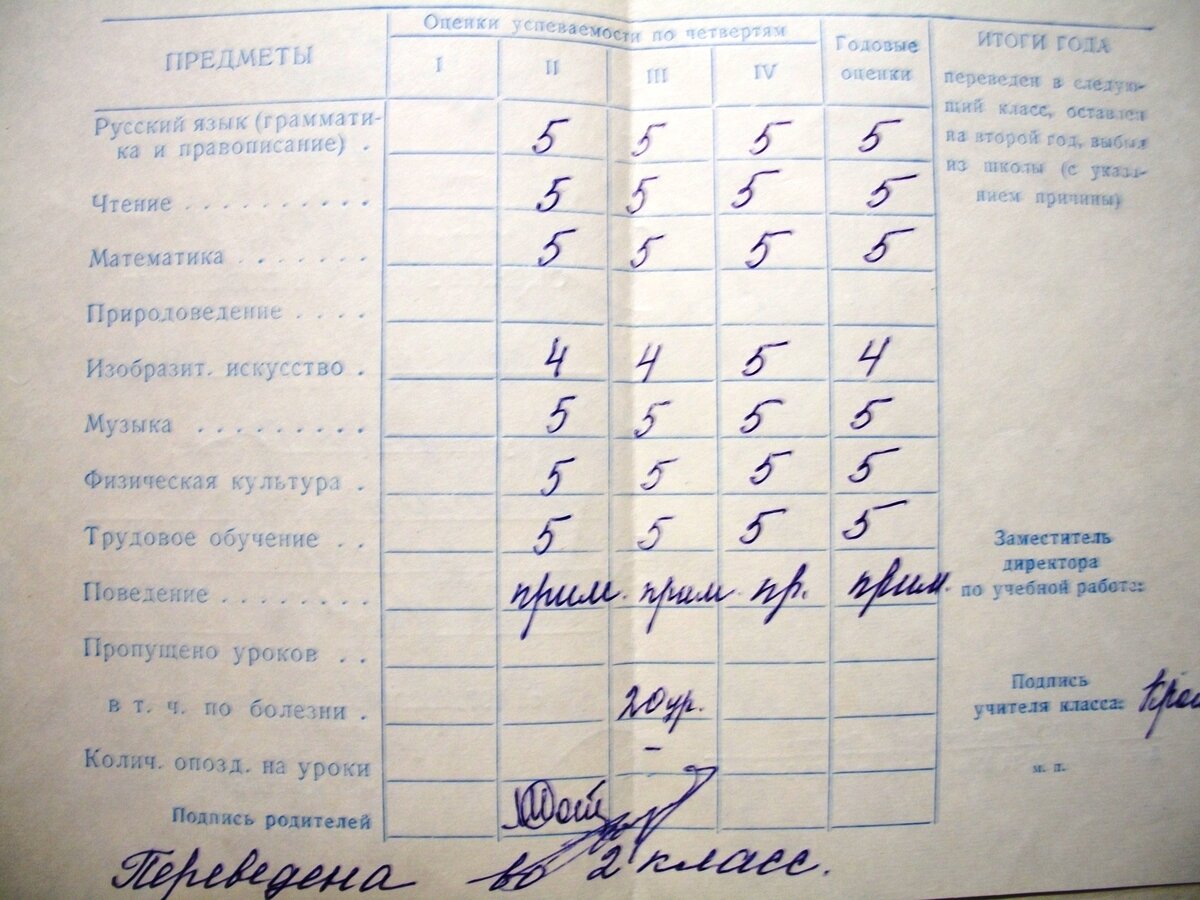 Оценки успеваемости по четвертям
ПРЕДМЕТЫ I II III IV Годовые оценки
Русский язык (граммати-
ка и правописание) . 5 5 5 5
Чтение . . . . . . . . . . 5 5 5 5
Математика . . . . . . . 5 5 5 5
Природоведение . . . .
Изобразит. искусство . 4 4 5 4
Музыка . . . . . . . . . 5 5 5 5
Физическая культура . 5 5 5 5
Трудовое обучение . . 5 5 5 5
Поведение . . . . . . . . прим. прим. пр. прим.
Пропущено уроков . .
в т. ч. по болезни . 20 ур.
Колич. опозд. на уроки –
Подпись родителей
Переведена во 2 класс.
ИТОГИ ГОДА
переведен в следую-
щий класс, оставлен
на второй год, выбыл
из школы (с указа-
нием причины)
Заместитель
директора
по учебной работе:
Подпись
учителя класса:
м. п.